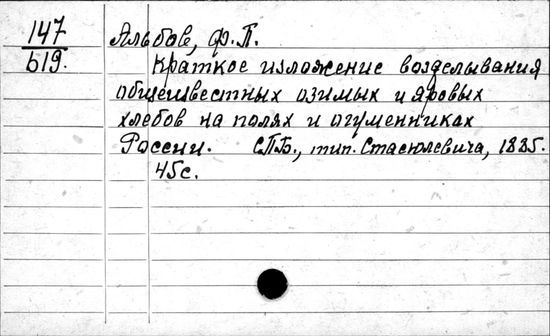 147
619.
Альбов, Ф.П.
Краткое изложение возделывания
общеизвестных озимых и яровых
хлебов на полях и огуменниках
России. СПБ., тип. Стасюлевича, 1885.
45с.